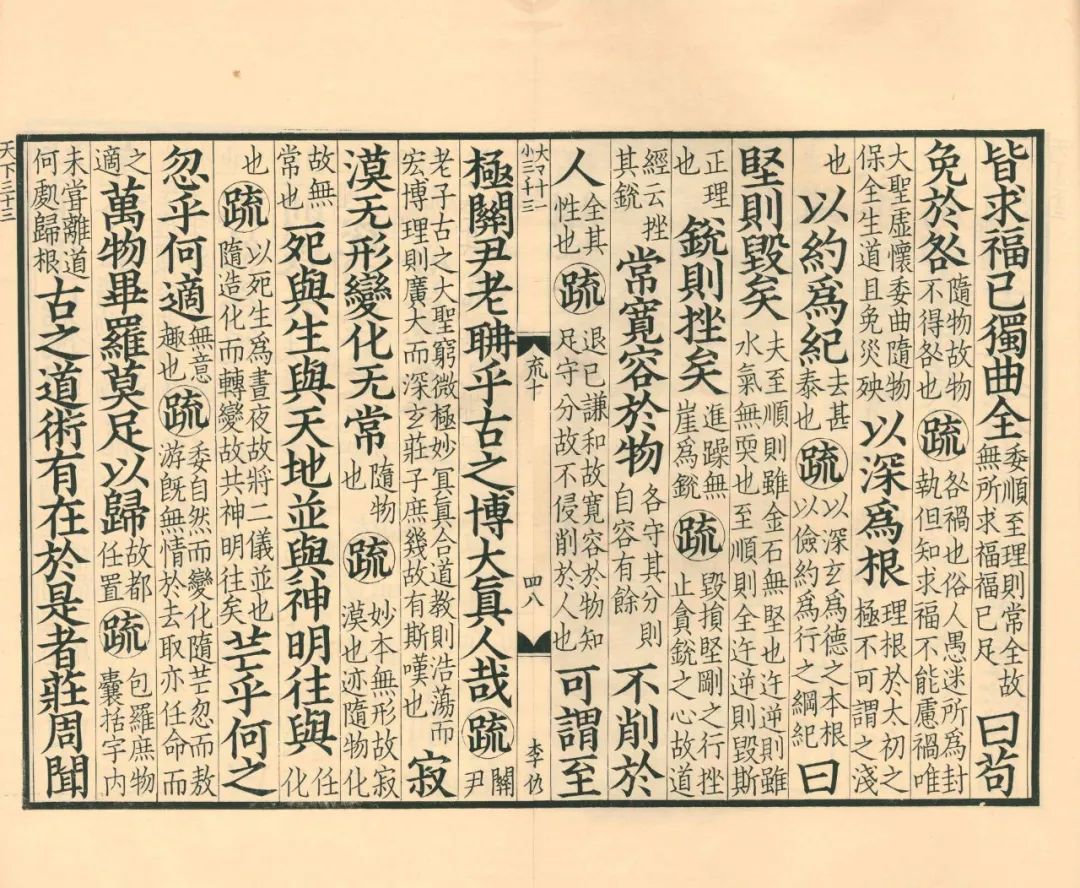 皆求福己獨曲全委順至理則常全故無所求福福已足曰苟
免於咎隨物故物不得咎也疏咎禍也俗人愚迷所爲封執但知求福不能慮禍唯
大聖虛懷委曲隨物保全生道且免災殃以深爲根理根於太初之極不可謂之淺
也以約爲紀去甚泰也疏以深玄爲德之本根以儉約爲行之綱紀曰
堅則毀矣夫至順則雖金石無堅也迕逆則雖水氣無耎也至順則全迕逆則毀斯
正理也銳則挫矣進躁無崖爲銳疏毀損堅剛之行挫止貪銳之心故道
經云挫其銳常寬容於物各守其分則自容有餘不削於
人全其性也疏退己謙和故寬容於物知足守分故不侵削於人也可謂至
大マ十一
小三千三
㐬十
四八
李仍
極關尹老聃乎古之博大眞人哉疏關尹
老子古之大聖窮微極妙冥眞合道教則浩蕩而宏博理則廣大而深玄莊子庶幾故有斯嘆也寂
漠无形變化无常隨物也疏妙本無形故寂漠也迹隨物化
故無常也死與生與天地並與神明往與任化
也疏以死生爲晝夜故將二儀並也隨造化而轉變故共神明往矣芒乎何之
忽乎何適無意趣也疏委自然而變化隨芒忽而敖游既無情於去取亦任命而
之適萬物畢羅莫足以歸故都任置疏包羅庶物囊括宇內
未嘗離道何處歸根古之道術有在於是者莊周聞
天下三十三